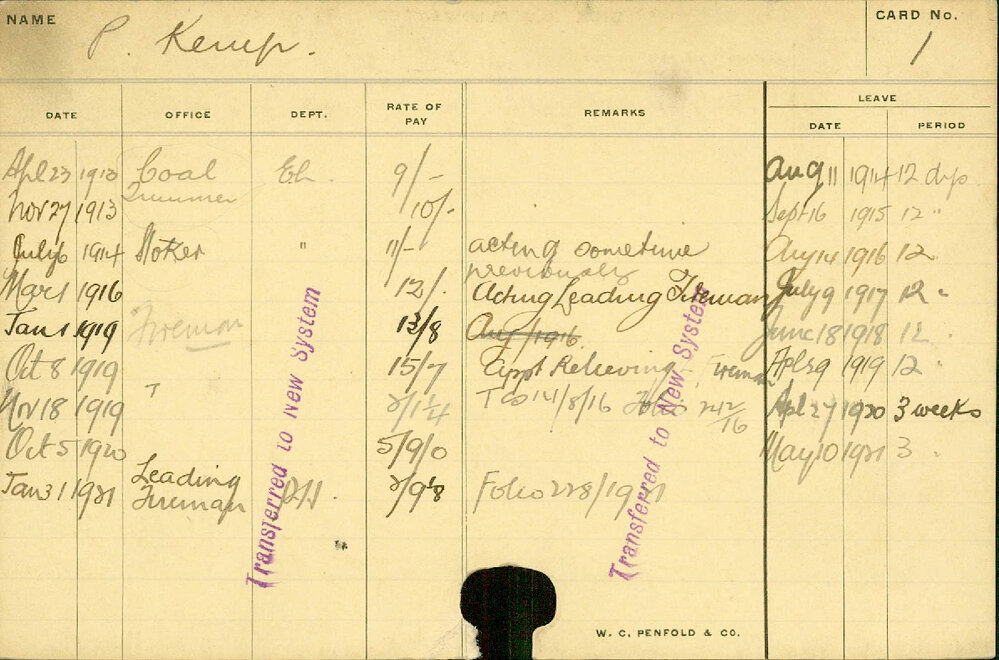 NAME P. Kemp. CARD No. 1
LEAVE
DATE OFFICE DEPT. RATE OF PAY REMARKS DATE PERIOD
Apl 23 1913 Coal Eh. 9/- Aug 11 1914 12 dys
Trimmer
Nov 27 1913 10/- Sept 16 1915 12 "
July 6 1914 Stoker " 11/- acting sometime Aug 14 1916 12
previously
Mar 1 1916 12/- Acting Leading Fireman July 9 1917 12 "
Jan 1 1919 Fireman 13/8 Aug/1916 June 18 1918 12 "
Oct 8 1919 15/7 Appt Relieving Fireman Apl 29 1919 12 "
Nov 18 1919 T T Co 14/8/16 Apl 27 1920 3 weeks
Oct 5 1920 5/9/0 May 10 1921 3 "
Leading
Jan 31 1921 Fireman Folio 228/1921
Transferred to New System
Transferred to New System
W. C. PENFOLD & CO.